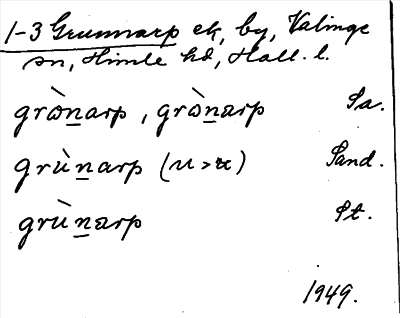 1-3 Grunnarp ek, by, Valinge
sn, Himle hd, Hall. l.
grὼn̲arp, grὼn̲arp Sa.
grùn̲arp (u > ʉ) Sand.
grùn̲arp St.
1949.